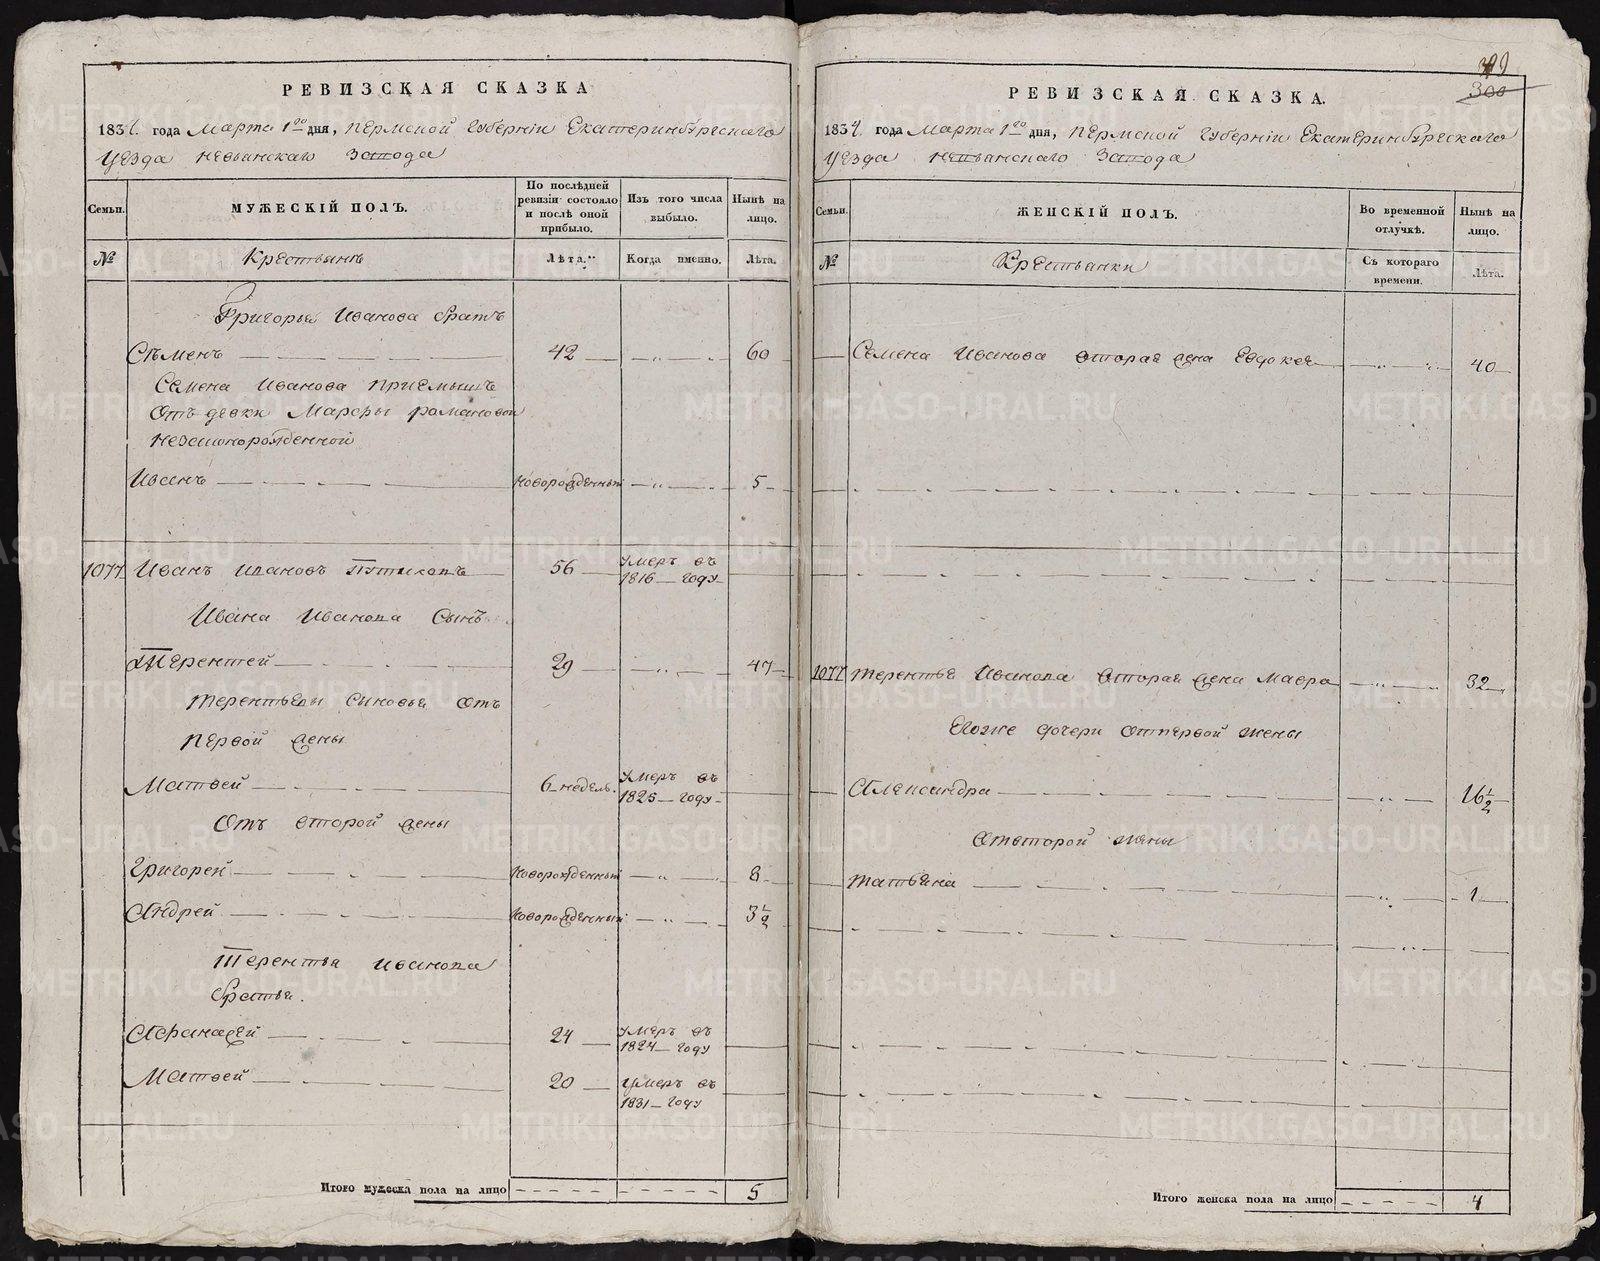 РЕВИЗСКАЯ СКАЗКА
1834. года Марта 1го дня, Пермской Губернiи Екатеринбургскаго
Уезда Невьянскаго Завода
Семьи.
МУЖЕСКIЙ ПОЛЪ.
По послѣдней ревизiи состояло и послѣ оной прибыло.
Изъ того числа выбыло.
Нынѣ на лицо.
№
Крестьянъ
Лѣта.
Когда именно.
Лѣта.
Григорья Иванова братъ
Сѣменъ 42 60
Семена Иванова приемышъ
Отъ девки Марфы романовой
незаконорожденной
Иванъ новорожденный 5
1077 Иванъ Ивановъ Путиковъ 56 умеръ въ 1816 году
Ивана Иванова Сынъ
Терентей 29 47
Терентьевы сыновья отъ
первой жены
Матвей 6 недель. умеръ въ 1825 году
Отъ второй жены
Григорей новорожденный 8
Андрей новорожденный 3 1/2
Терентья Иванова
братья.
Афанасей 24 умеръ въ 1824 году
Матвей 20 умеръ въ 1831 году
Итого мужеска пола на лицо 5
300
РЕВИЗСКАЯ СКАЗКА.
1834. года Марта 1го дня, Пермской Губернiи Екатеринбургскаго
Уезда Невьянского Завода
Семьи.
ЖЕНСКIЙ ПОЛЪ.
Во временной отлучкѣ.
Нынѣ на лицо.
№
Крестьянки
Съ котораго времени.
Лѣта.
Семена Иванова вторая жена Евдокея 40
1077 терентья Иванова вторая жена Мавра 32
Егоже дочери отпервой жены
Александра 16 1/2
Отвторой жены
татьяна 1
Итого женска пола на лицо 4
METRIKI.GASO-URAL.RU